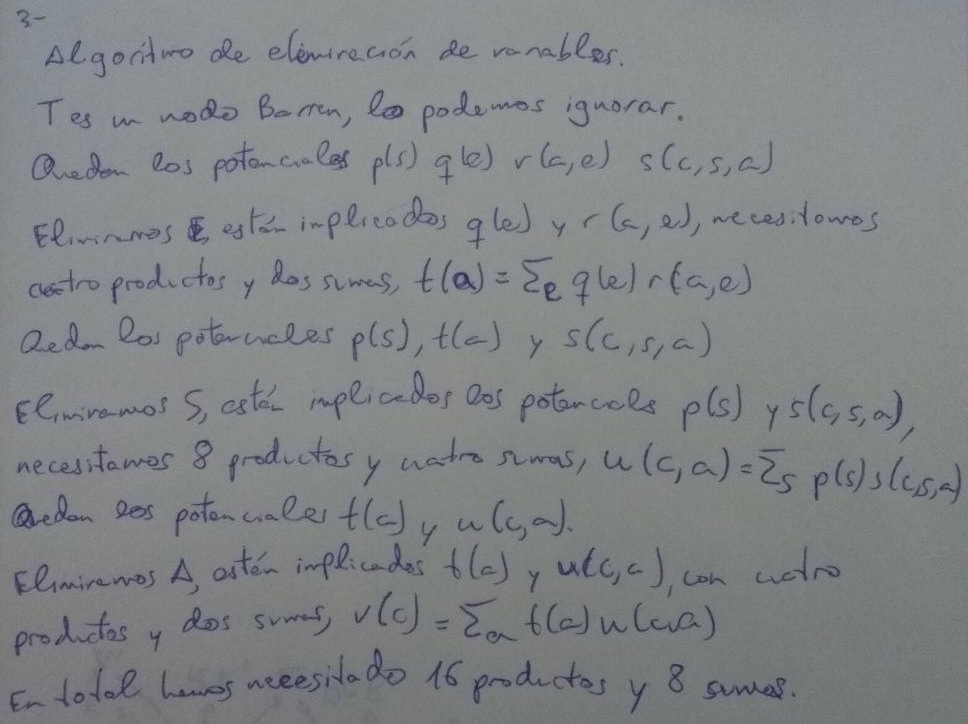 3-
Algoritmo de eliminación de variables.
T es un nodo Barren, lo podemos ignorar.
Quedan los potenciales p(s) q(e) r(a,e) s(c,s,a)
Eliminamos E, están implicados q(e) y r(a,e), necesitamos
cuatro productos y dos sumas, t(a) = Σe q(e) r(a,e)
Quedan los potenciales p(s), t(a) y s(c,s,a)
Eliminamos S, están implicados los potenciales p(s) y s(c,s,a),
necesitamos 8 productos y cuatro sumas, u(c,a) = Σs p(s) s(c,s,a)
Quedan los potenciales t(a) y u(c,a).
Eliminamos A, están implicados t(a) y u(c,a), con cuatro
productos y dos sumas, v(c) = Σa t(a) u(c,a)
En total hemos necesitado 16 productos y 8 sumas.